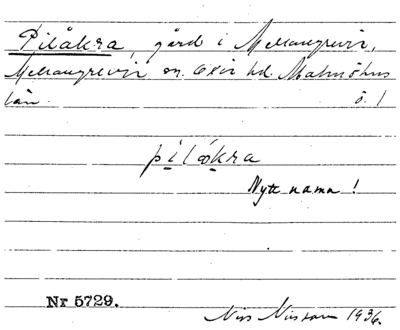 Pilåkra, gård i Mellangrevie,
Mellangrevie sn. Oxie hd. Malmöhus
län. ö. 1
pilåkra
Nytt namn!
Nr 5729.
Nils Nilsson 1936.